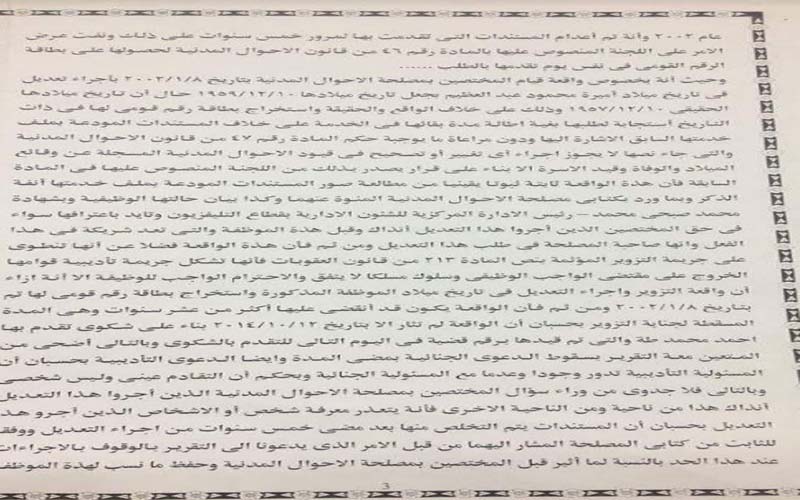 عام ٢٠٠٢ وأنه تم أعدام المستندات التى تقدمت بها لمرور خمس سنوات على ذلك ونفت عرض
الامر على اللجنة المنصوص عليها بالمادة رقم ٤٦ من قانون الاحوال المدنية لحصولها على بطاقة
الرقم القومى فى نفس يوم تقدمها بالطلب ......
وحيث أنة بخصوص واقعة قيام المختصين بمصلحة الاحوال المدنية بتاريخ ٢٠٠٢/١/٨ بأجراء تعديل
فى تاريخ ميلاد أميرة محمود عبد العظيم بجعل تاريخ ميلادها ١٩٥٩/١٢/١٠ حال أن تاريخ ميلادها
الحقيقى ١٩٥٧/١٢/١٠ وذلك على خلاف الواقع والحقيقة واستخراج بطاقة رقم قومى لها فى ذات
التاريخ أستجابة لطلبها بغية اطالة مدة بقائها فى الخدمة على خلاف المستندات المودعة بملف
خدمتها السابق الاشارة اليها ودون مراعاة ما يوجبة حكم المادة رقم ٤٧ من قانون الاحوال المدنية
والتى جاء نصها لا يجوز اجراء أى تغيير أو تصحيح فى قيود الاحوال المدنية المسجلة عن وقائع
الميلاد والوفاة وقيد الاسرة الا بناء على قرار يصدر بذلك من اللجنة المنصوص عليها فى المادة
السابقة فأن هذة الواقعة ثابتة ثبوتا يقينيا من مطالعة صور المستندات المودعة بملف خدمتها أنفة
الذكر وبما ورد بكتابى مصلحة الاحوال المدنية المنوة عنهما وكذا بيان حالتها الوظيفية وبشهادة
محمد صبحى محمد – رئيس الادارة المركزية للشئون الادارية بقطاع التليفزيون وتايد باعترافها سواء
فى حق المختصين الذين أجروا هذا التعديل أنذاك وقبل هذة الموظفة والتى تعد شريكة فى هذا
الفعل وانها صاحبة المصلحة فى طلب هذا التعديل ومن ثم فأن هذة الواقعة فضلا عن أنها تنطوى
على جريمة التزوير المؤثمة بنص المادة ٢١٣ من قانون العقوبات فأنها تشكل جريمة تأديبية قوامها
الخروج على مقتضى الواجب الوظيفى وسلوك مسلكا لا يتفق والاحترام الواجب للوظيفة الا أنة ازاء
أن واقعة التزوير واجراء التعديل فى تاريخ ميلاد الموظفة المذكورة واستخراج بطاقة رقم قومى لها تم
بتاريخ ٢٠٠٢/١/٨ ومن ثم فأن الواقعة يكون قد أنقضى عليها أكثر من عشر سنوات وهى المدة
المسقطة لجناية التزوير بحسبان أن الواقعة لم تثار الا بتاريخ ٢٠١٤/١٠/١٢ بناء على شكوى تقدم بها
احمد محمد طة والتى تم قيدها برقم قضية فى اليوم التالى للتقدم بالشكوى وبالتالى أضحى من
المتعين معة التقرير بسقوط الدعوى الجنائية بمضى المدة وايضا الدعوى التأديبية بحسبان أن
المسئولية التأديبية تدور وجودا وعدما مع المسئولية الجنائية وبحكم أن التقادم عينى وليس شخصى
وبالتالى فلا جدوى من وراء سؤال المختصين بمصلحة الاحوال المدنية الذين أجروا هذا التعديل
أنذاك هذا من ناحية ومن الناحية الاخرى فأنة يتعذر معرفة شخص أو الاشخاص الذين أجرو هذا
التعديل بحسبان أن المستندات يتم التخلص منها بعد مضى خمس سنوات من اجراء التعديل ووفقا
للثابت من كتابى المصلحة المشار اليهما من قبل الامر الذى يدعونا الى التقرير بالوقوف بالاجراءات
عند هذا الحد بالنسبة لما أثير قبل المختصين بمصلحة الاحوال المدنية وحفظ ما نسب لهذة الموظف
3